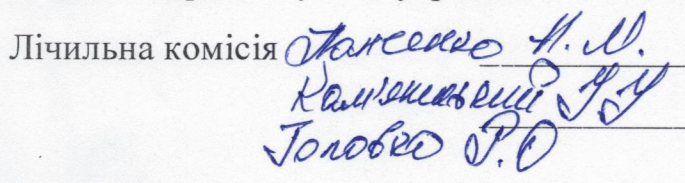 Лічильна комісія Панченко Н. М.
Кам'янський У У
Головко Р.О